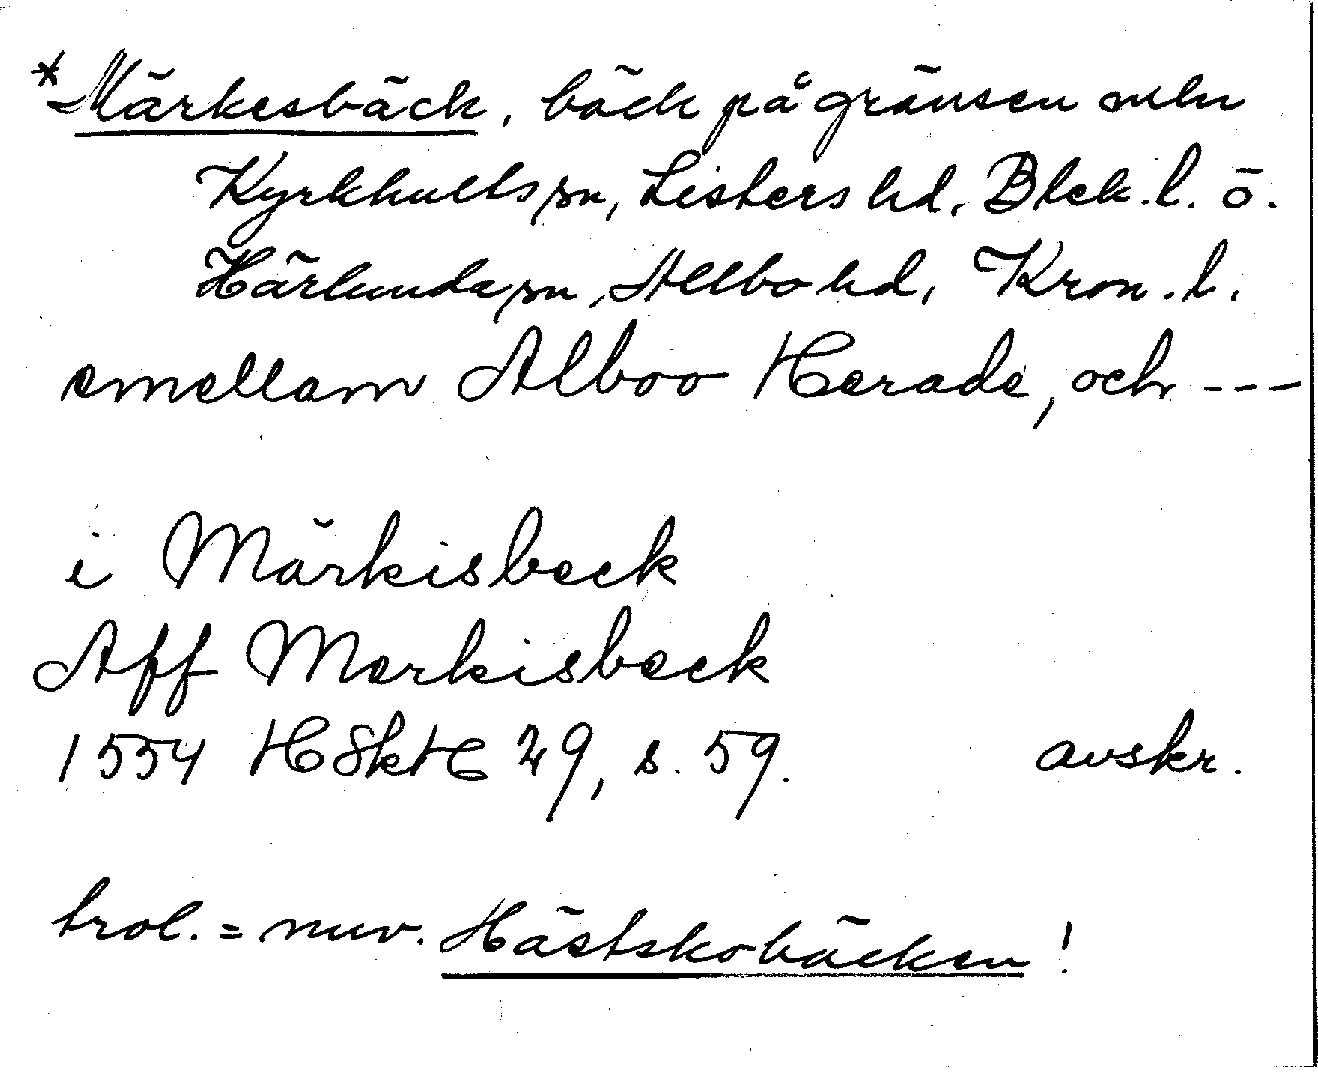 *Märkesbäck, bäck på gränsen mln
Kyrkhults sn, Listers hd, Blek. l. o.
Härlunda sn, Allbo hd, Kron. l.
emellam Alboo Herade, och ---
i Märkisbeck
Aff Merkisbeck
1554 HSkH 29, s. 59. avskr.
trol. = nuv. Hästskobäcken!